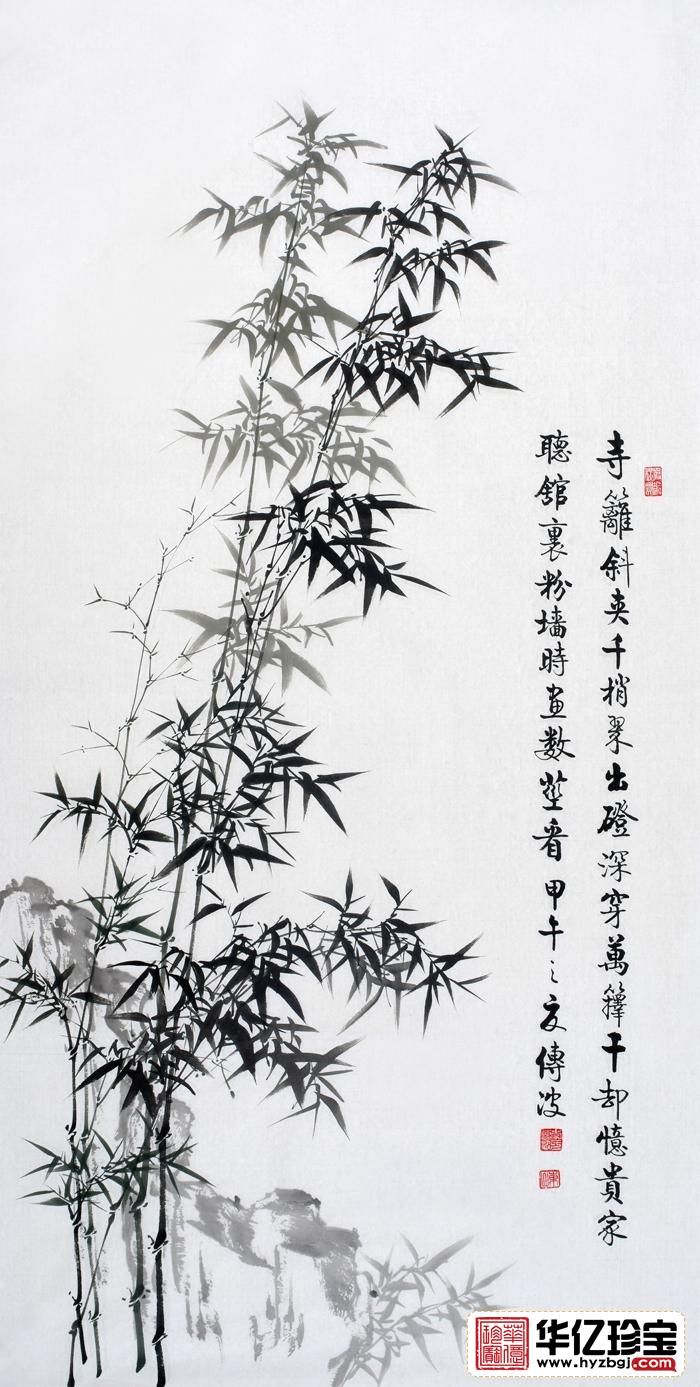 寺籬斜夾千梢翠出磴深穿萬籜干却憶貴家
聽館裏粉墻時畫數莖看甲午之夏傳波
华亿珍宝
www.hyzbgj.com